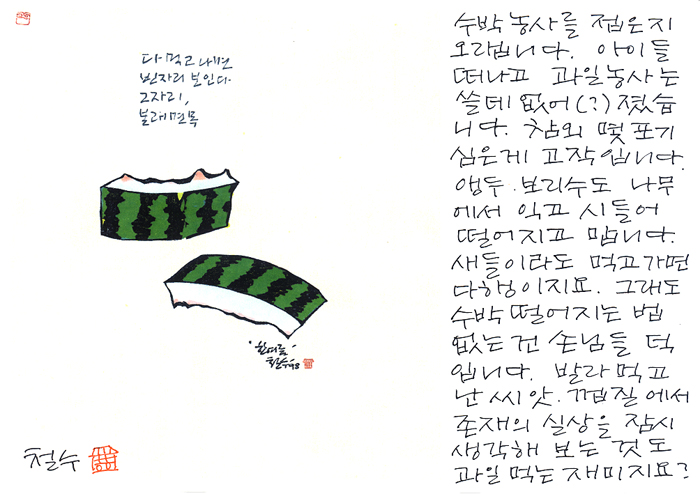 다 먹고 나면
빈자리 보인다
그 자리,
본래면목
"한여름"
철수 '98
철수
수박 농사를 접은지
오래됩니다. 아이들
떠나고 과일농사는
쓸데 없어(?)졌습
니다. 참외 몇 포기
심은게 고작입니다.
앵두. 보리수도 나무
에서 익고 시들어
떨어지고 맙니다.
새들이라도 먹고가면
다행이지요. 그래도
수박 떨어지는 법
없는 건 손님들 덕
입니다. 발라먹고
난 씨앗. 껍질에서
존재의 실상을 잠시
생각해 보는 것도
과일 먹는 재미지요?